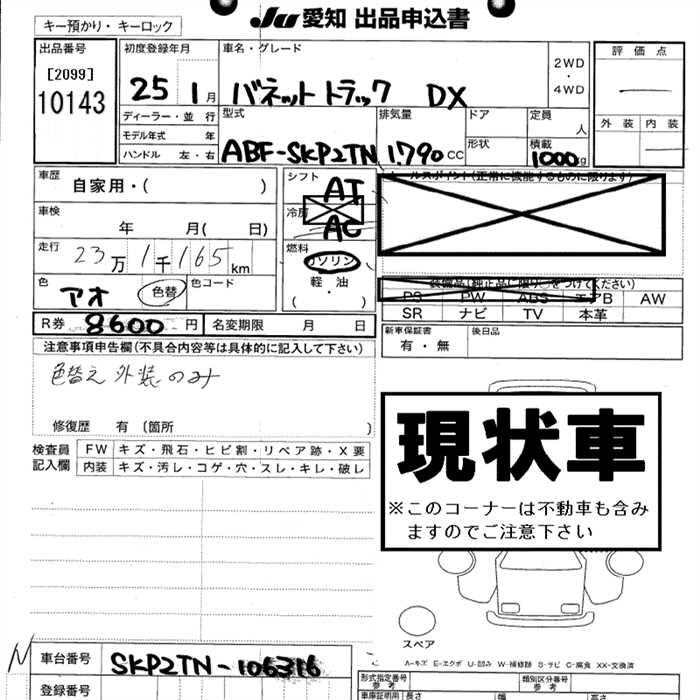 キー預かり・キーロック
JU 愛知 出品申込書
出品番号
[2099]
10143
初度登録年月
25 1月
車名・グレード
バネットトラック DX
2WD
・
4WD
評価点
外装 内装
ディーラー・並行
モデル年式 年
ハンドル 左・右
型式
ABF-SKP2TN
排気量
1.790cc
ドア
形状
定員
人
積載
1000kg
車歴
自家用・( )
車検
年 月( 日)
走行
23万1千165km
色
アオ
色替
色コード
シフト
AT
冷房
AC
燃料
ガソリン
軽・油
( ・ )
セールスポイント(正常に機能するものに限ります)
装備品(純正品に限り○をつけてください)
PS PW ABS エアB AW
SR ナビ TV 本革
R券 8600円
名変期限 月 日
新車保証書
有・無
後日品
注意事項申告欄(不具合内容等は具体的に記入して下さい)
色替え 外装のみ
修復歴 有 〔箇所 〕
検査員
記入欄
FW キズ・飛石・ヒビ割・リペア跡・X要
内装 キズ・汚レ・コゲ・穴・スレ・キレ・破レ
現状車
※このコーナーは不動車も含み
ますのでご注意下さい
スペア
A-キズ E-エクボ U-凹み W-補修跡 S-サビ C-腐食 XX-交換済
N
車台番号
SKP2TN-106316
登録番号
形式指定番号
参考
類別区分番号
参考
車庫証明用
長さ
幅
高さ